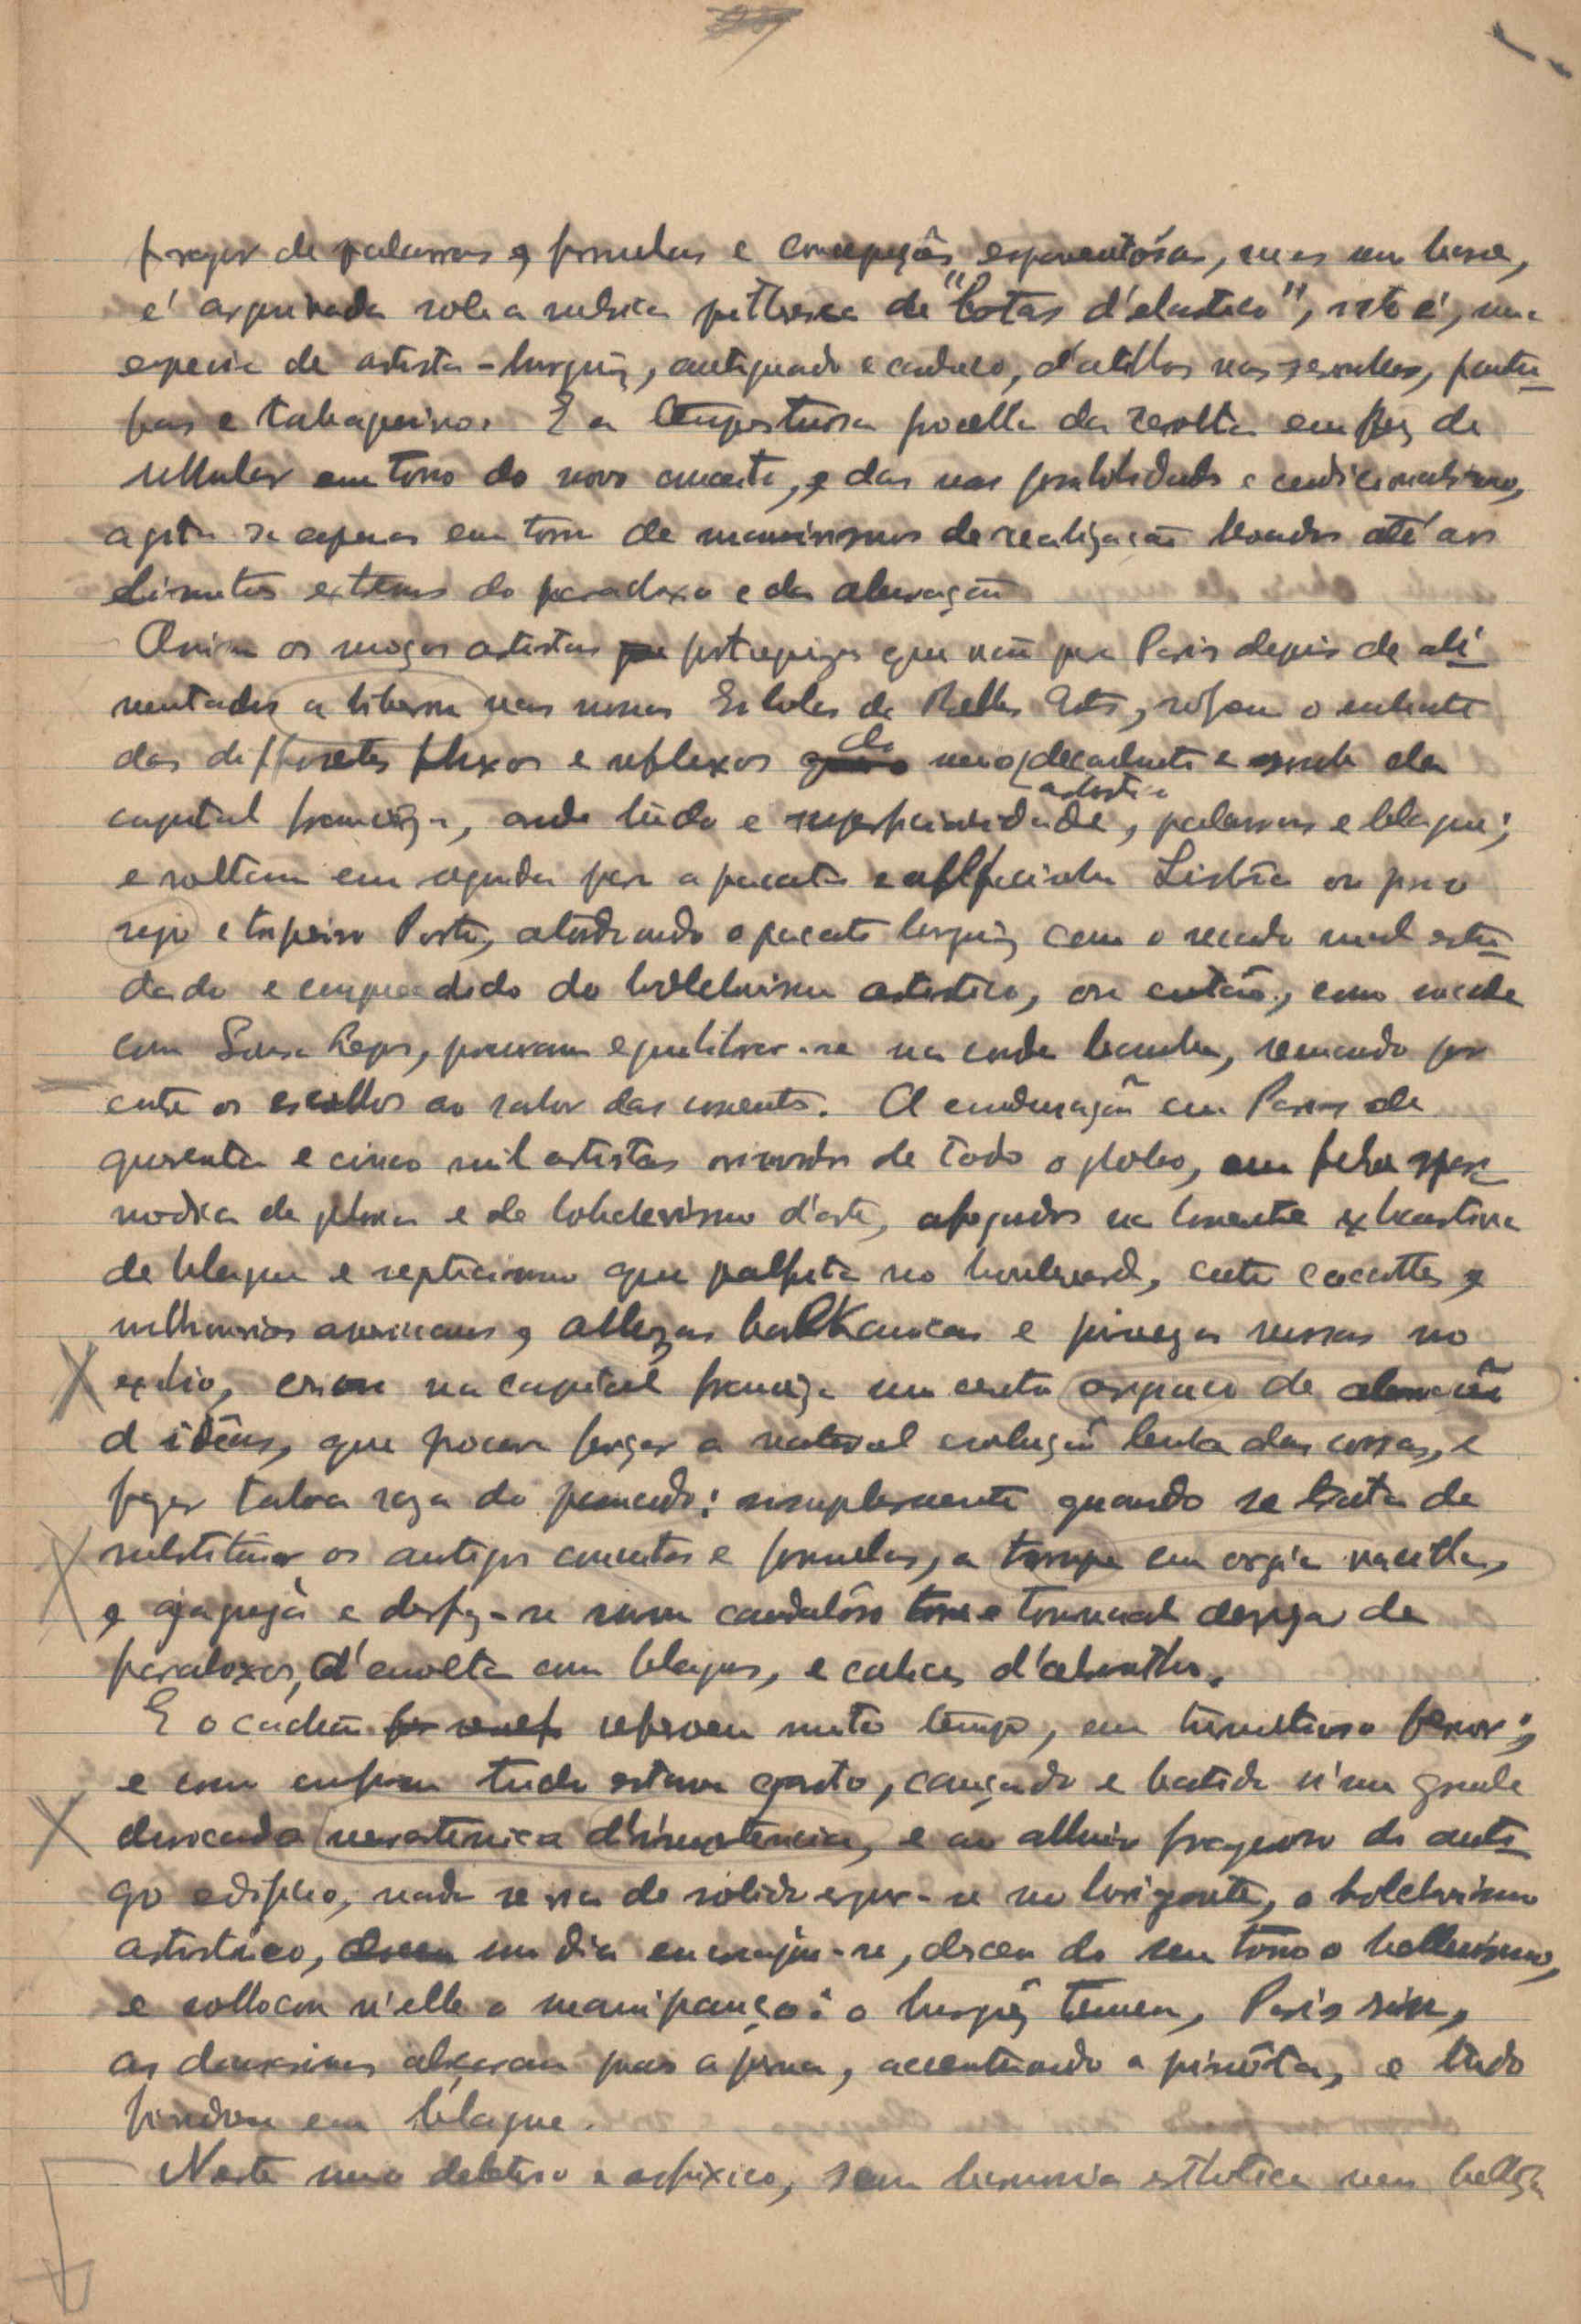 fragor de palavras e formulas e concepções espaventósas, mas sem base,
é arquivada sob a rubrica pitthoresca de "botas d'elastico", isto é, uma
especie de artista-burguêz, antiquado e caduco, d'atilhos nas ceroulas, pantu-
fas e tabaqueiro. E a tempestuosa procella da revolta em vez de
rellular em torno do novo conceito, e das suas possibilidades e condicionalismo,
agita-se apenas em torno de maneirismos de realização levados até aos
limites extremos do paradoxo e da aberração
Assim os moços artistas portuguêzes que vão para Paris depois de ali-
mentados a biberon nas nossas Escholas de Bellas Artes, sófrem o embate
dos differentes fluxos e refluxos do meio decadente e snob da
artistico
capital francêza, onde tudo é superficialidade, palavras e blague;
e voltam em seguida para a pacata e alfacinha Lisbôa ou para o
rijo e tripeiro Porto, atordoando o pacato burguêz com o recado mal estu-
dado e comprehendido do bolchevismo artistico, ou então, como succede
com Sousa Lopes, procuram equilibrar-se na corda bamba, remando por
entre os escolhos ao sabor das correntes. A conduração em Paris de
quarenta e cinco mil artistas oriundos de todo o globo, em febre spas-
modica de gloria e de bolchevismo d'arte, afogados na corrente exhaustiva
de blague e scepticismo que palpita no boulevard, entre cocottes e
milhonarios americanos, altezas balkanicas e princezas russas no
exilio, criou na capital francêza um certo espaço de aberração
d'idêas, que procura forçar a natural evolução lenta das coisas, e
fazer taboa raza do passado: simplesmente quando se trata de
substituir os antigos conceitos e formulas, a trompe em orgia vacilla,
e desfaz-se num caudalôso e torrencial despejar de
paradoxos, d'envolta com blagues, e calices d'absintho.
E o cachão referveu muito tempo, em tumultuoso fervor;
e como emfim tudo estava gasto, cançado e batido n'uma grande
derrocada neurastenica d'impotencia, e ao alluir fragoroso do anti-
go edificio, nada se via de solido erguer-se no horizonte, o bolchevismo
artistico, um dia encorajou-se, desceu do seu trono o hellenismo,
e collocou n'elle o manipanço: o burguêz temeu, Paris riu,
as dançarinas alçaram mais a perna, accentuando a piruêta, e tudo
findou em blague.
Neste meio deleterio e asfixico, sem harmonia esthetica nem belleza